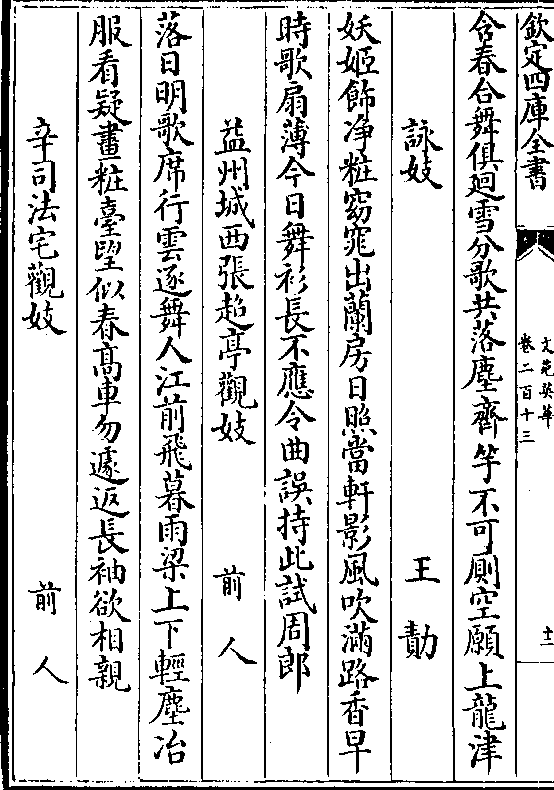 欽定四庫全書
文苑英華
卷二百十三
十二
含春合舞俱迴雪分歌共落塵齊竽不可廁空願上龍津
詠妓 王勣
妖姬飾净粧窈窕出蘭房日照當軒影風吹滿路香早
時歌扇薄今日舞衫長不應令曲誤持此試周郎
益州城西張超亭觀妓 前人
落日明歌席行雲逐舞人江前飛暮雨梁上下輕塵冶
服看疑畫粧臺望似春髙車勿遽返長袖欲相親
辛司法宅觀妓 前人